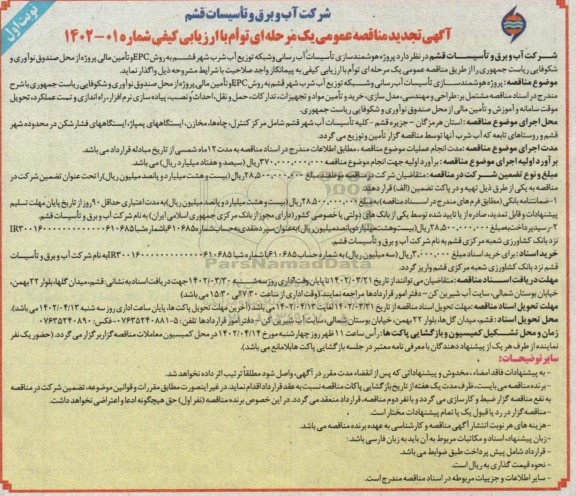 نوبت اول
شرکت آب و برق و تأسیسات قشم
آگهی تجدید مناقصه عمومی یک مرحله ای توأم با ارزیابی کیفی شماره ۰۱-۱۴۰۲
شرکت آب و برق و تأسیسات قشم در نظر دارد پروژه هوشمندسازی تأسیسات آب رسانی وشبکه توزیع آب شرب شهر قشم به روش EPC وتأمین مالی پروژه از محل صندوق نوآوری و
شکوفایی ریاست جمهوری را از طریق مناقصه عمومی یک مرحله ای توأم با ارزیابی کیفی به پیمانکار واجد صلاحیت با شرایط مشروحه ذیل واگذار نماید.
موضوع مناقصه: پروژه هوشمندسازی تأسیسات آب رسانی وشبکه توزیع آب شرب شهر قشم به روش EPC وتأمین مالی پروژه از محل صندوق نوآوری و شکوفایی ریاست جمهوری با شرح
مندرج در اسناد مناقصه مشتمل بر: طراحی و مهندسی، مدل سازی، خرید و تأمین مواد و تجهیزات، تدارکات، حمل و نقل، احداث و نصب، پیاده سازی نرم افزار، راه اندازی و تست عملکرد، تحویل
موقت سامانه و آموزش و تأمین مالی از محل صندوق نوآوری و شکوفایی ریاست جمهوری.
محل اجرای موضوع مناقصه: استان هرمزگان - جزیره قشم - کلیه تأسیسات آب شهر قشم شامل مرکز کنترل، چاه‌ها، مخازن، ایستگاههای پمپاژ، ایستگاههای فشارشکن در محدوده شهر
قشم و روستاهای تابعه که آب شرب آنها توسط مناقصه گزار تأمین و توزیع می گردد.
مدت اجرای موضوع مناقصه: مدت انجام عملیات موضوع مناقصه، مطابق اطلاعات مندرج در اسناد مناقصه به مدت ۱۲ ماه شمسی از تاریخ مبادله قرارداد می باشد.
برآورد اولیه اجرای موضوع مناقصه: برآورد اولیه جهت انجام موضوع مناقصه ۳۷۰,۰۰۰,۰۰۰,۰۰۰ ریال (سیصد و هفتاد میلیارد ریال) می باشد.
مبلغ و نوع تضمین شرکت در مناقصه: متقاضیان شرکت در مناقصه موظفند مبلغ ۲۸,۵۰۰,۰۰۰,۰۰۰ ریال (بیست و هشت میلیارد و پانصد میلیون ریال) را تحت عنوان تضمین شرکت در
مناقصه به یکی از طرق ذیل تهیه و در پاکت تضمین (الف) قرار دهند:
۱- ضمانتنامه بانکی (مطابق فرم های مندرج در اسناد مناقصه) به مبلغ ۲۸,۵۰۰,۰۰۰,۰۰۰ ریال (بیست و هشت میلیارد و پانصد میلیون ریال) به مدت اعتباری حداقل ۹۰ روز از تاریخ پایان مهلت تسلیم
پیشنهادات و قابل تمدید، صادره از یا تایید شده توسط یکی از بانک های دولتی یا خصوصی کشور (دارای مجوز از بانک مرکزی جمهوری اسلامی ایران) به نام شرکت آب و برق و تأسیسات قشم.
۲- رسید پرداخت به مبلغ ۲۸,۵۰۰,۰۰۰,۰۰۰ ریال (بیست وهشت میلیارد و پانصد میلیون ریال) به عنوان سپرده نقدی به حساب شماره ۶۱۰۶۸۵ با شماره شبا
نزد بانک کشاورزی شعبه مرکزی قشم به نام شرکت آب و برق و تأسیسات قشم.
خرید اسناد: برای خرید اسناد مبلغ ۳,۰۰۰,۰۰۰ ریال (سه میلیون ریال) به شماره حساب ۶۱۰۶۸۵ با شماره شبا به نام شرکت آب و برق و تأسیسات
قشم نزد بانک کشاورزی شعبه مرکزی قشم واریز گردد.
مهلت دریافت اسناد مناقصه: متقاضیان می توانند از تاریخ ۱۴۰۲/۰۳/۲۱ تا پایان وقت اداری روز سه شنبه ۱۴۰۲/۰۳/۳۰ جهت دریافت اسناد به نشانی: قشم، میدان گلها، بلوار ۲۲ بهمن،
خیابان بوستان شمالی، سایت آب شیرین کن - دفتر امور قراردادها مراجعه نمایند. (وقت اداری از ساعت ۷:۳۰ الی ۱۵:۳۰ می باشد)
مهلت تحویل اسناد مناقصه: مهلت تحویل اسناد مناقصه از تاریخ ۱۴۰۲/۰۳/۳۱ لغایت ۱۴۰۲/۰۴/۱۳ می باشد. (آخرین مهلت تحویل پاکت ها، پایان ساعت اداری روز سه شنبه ۱۴۰۲/۰۴/۱۳ می باشد)
محل تحویل اسناد: قشم، میدان گل ها، بلوار ۲۲ بهمن، خیابان بوستان شمالی، سایت آب شیرین کن - دفتر امور قراردادها تلفن: ۵-۰۷۶۳۵۲۴۰۸۸۱ فکس: ۰۷۶۳۵۲۴۰۸۹۰
زمان و محل تشکیل کمیسیون و بازگشایی پاکت ها: رأس ساعت ۱۱ ظهر روز چهارشنبه مورخ ۱۴۰۲/۰۴/۱۴ در محل کمیسیون معاملات مناقصه گزار برگزار می گردد. (حضور یک نفر
نماینده از طرف هر یک از پیشنهاد دهندگان با معرفی نامه معتبر در جلسه بازگشایی پاکت ها بلامانع می باشد).
سایر توضیحات:
- به پیشنهادات فاقد امضاء، مخدوش و پیشنهاداتی که پس از انقضاء مدت مقرر در آگهی، واصل شود مطلقاً ترتیب اثر داده نخواهد شد.
- برنده مناقصه می بایست، ظرف مدت یک هفته از تاریخ بازگشایی پاکات مناقصه نسبت به عقد قرارداد اقدام نماید. در غیر اینصورت مطابق مقررات و قوانین موضوعه، تضمین شرکت در مناقصه
به نفع مناقصه گزار ضبط و کارسازی می گردد و با نفر دوم مناقصه، قرارداد منعقد می گردد. در این خصوص برنده مناقصه (نفر اول) حق هیچگونه ادعا و اعتراضی نخواهد داشت.
- مناقصه گزار در رد یا قبول یک یا تمام پیشنهادات مختار است.
- هزینه های هر نوبت انتشار آگهی مناقصه و کارشناسی به عهده برنده مناقصه می باشد.
- زبان پیشنهاد، اسناد و مکاتبات مربوط به آن باید به زبان فارسی باشد.
- قرارداد شامل پیش پرداخت طبق ضوابط می باشد.
- نحوه قیمت گذاری به ریال است.
- سایر اطلاعات و جزییات مربوطه در اسناد مناقصه مندرج است.
ParsNamadData